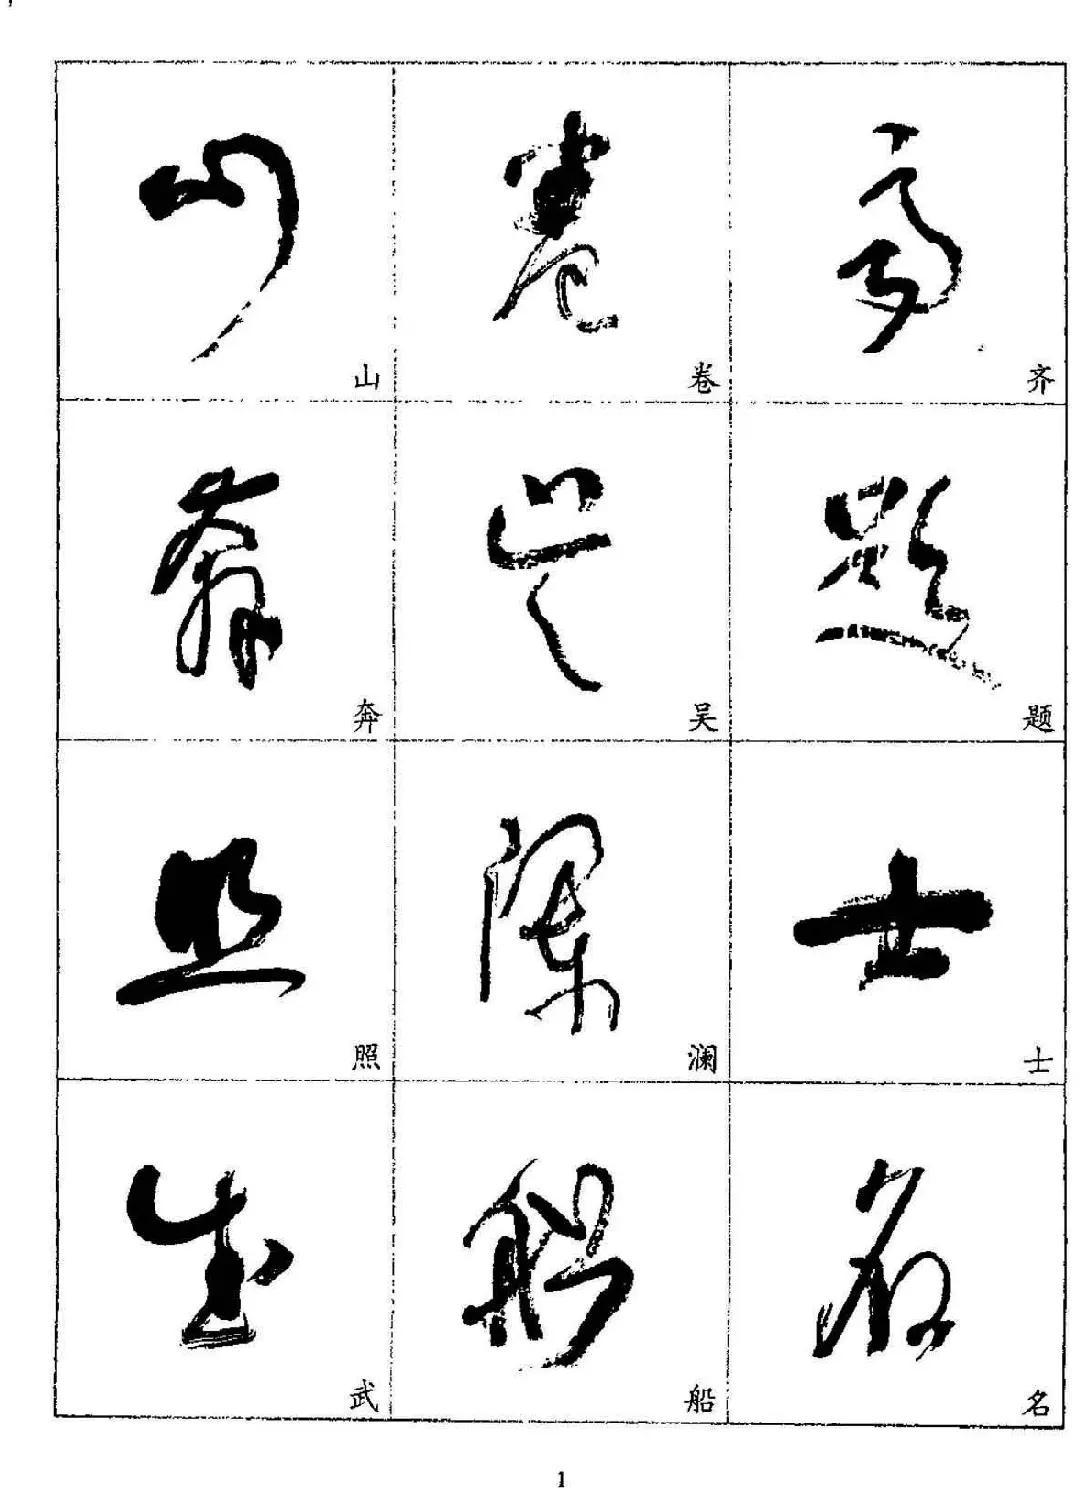 山 卷 齐
奔 吴 题
照 澜 士
武 船 名
1